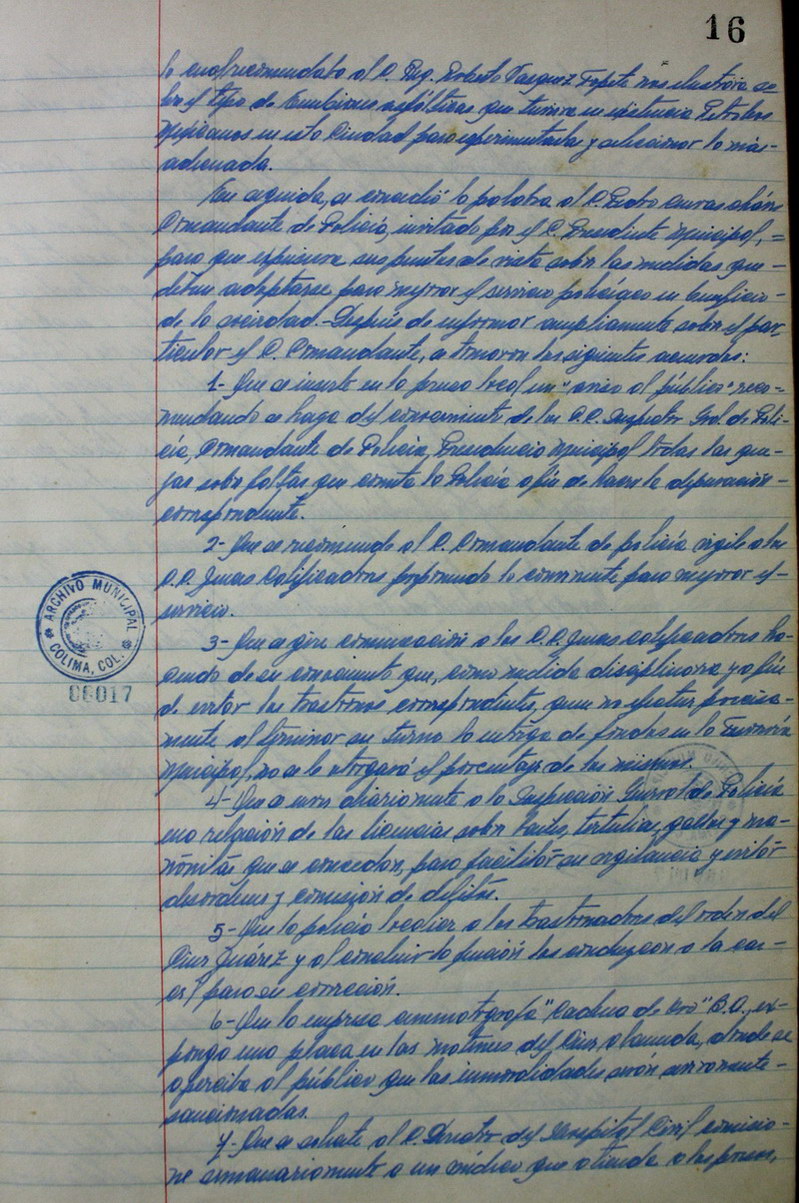 16
lo cual recomendaba al C. Ing. Roberto Vázquez Topete nos ilustrara so-
bre el tipo de emulsiones asfálticas que tuviera en existencia Petróleos
Mexicanos en esta Ciudad para experimentarlas y seleccionar la más-
adecuada.
En seguida, se concedió la palabra al C. Pedro
Comandante de Policía, invitado por el C. Presidente Municipal, =
para que expusiera sus puntos de vista sobre las medidas que -
deban adoptarse para mejorar el servicio policíaco en beneficio -
de la sociedad.- Después de informar ampliamente sobre el par-
ticular el C. Comandante, se tomaron los siguientes acuerdos:
1- Que se inserte en la prensa local un "aviso al público" reco-
mendando se haga del conocimiento de los C.C. Inspector Gral. de Poli-
cía, Comandante de Policía, Presidencia Municipal todas las que-
jas sobre faltas que cometa la Policía a fin de hacer la depuración -
correspondiente.
2- Que se recomiende al C. Comandante de policía vigile a los
C.C. Jueces Calificadores proponiendo lo conveniente para mejorar el -
servicio.
3- Que se gire comunicación a los C.C. Jueces calificadores ha-
ciendo de su conocimiento que, como medida disciplinaria y a fin
de evitar los trastornos correspondientes, quien no efectúe precisa-
mente al terminar su turno la entrega de fondos en la Tesorería
Municipal, no se le otorgará el porcentaje de los mismos.
4- Que se envíe diariamente a la Inspección General de Policía
una relación de las licencias sobre bailes, tertulias, gallos y ma-
ñanitas que se concedan, para facilitar su vigilancia y evitar
desórdenes y comisión de delitos.
5- Que la policía localice a los trastornadores del orden del
Cine Juárez y al concluir la función los conduzcan a la cár-
cel para su corrección.
6- Que la empresa cinematográfica "Cadena de Oro" S.A., ex-
ponga una placa en las matinées del Cine, a la mitad, donde se
aperciba al público que las inmoralidades serán severamente -
sancionadas.
7- Que se exhorte al C. Director del Hospital Civil comisio-
ne semanariamente a un médico que atienda a los presos,
ARCHIVO MUNICIPAL
COLIMA, COL.
00017